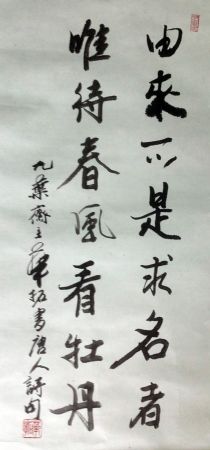 由来不是求名者
唯待春風看牡丹
九葉齋主華拓書唐人詩句